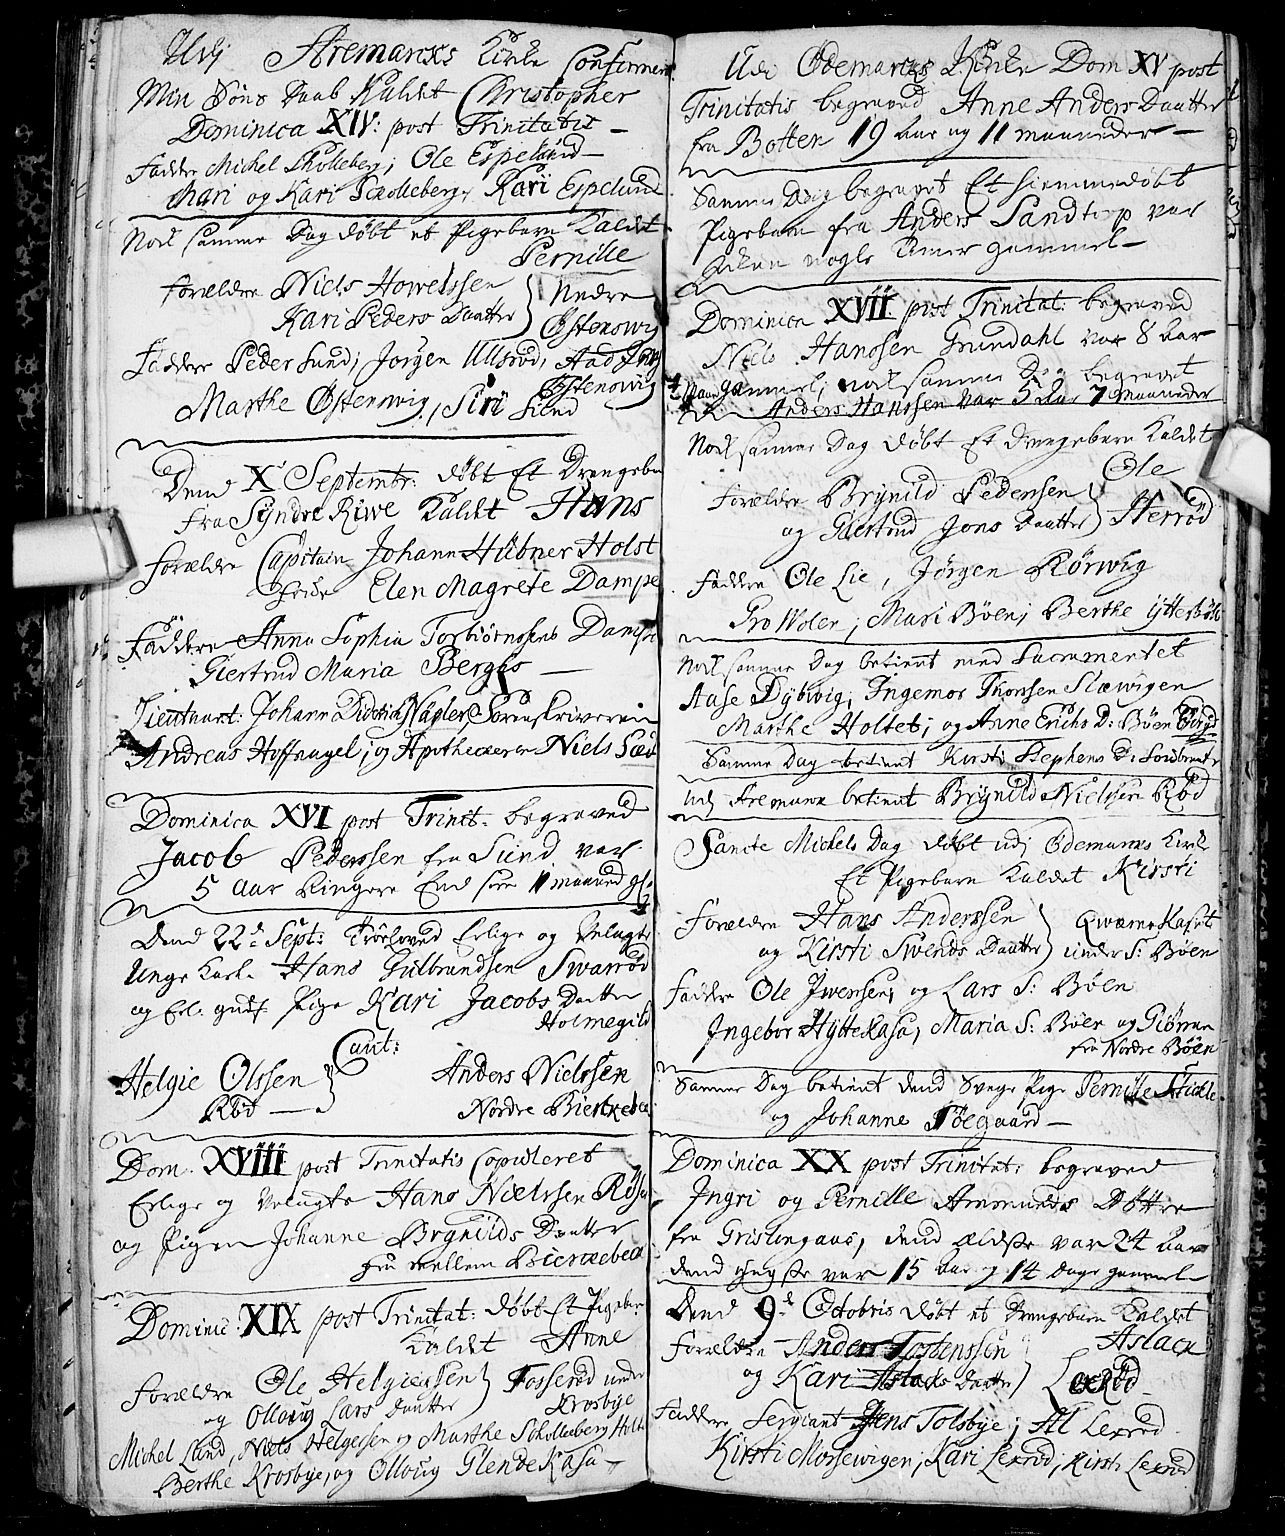 Udj Aremarcks Kirke Confirmert
Min Søns Daab Kaldet Christopher
Dominica XIV: post Trinitatis —
Faddre Michel Skolleberg; Ole Espelund —
Mari og Kari Skolleberg, Kari Espelund
Nock samme Dag døbt et Pigebarn Kaldet
Pernille
Forældre Niels Howelssen } Nedre
Kari Peders Daatter } Østenswig
Faddre Peder Lund; Jørgen Ullerød,
Østenswig
Marthe Østenswig, Siri Lund
Dend X Septembr: døbt Et Drengebarn
fra Syndre Riwe Kaldet Hans
Forældre Capitain Johann Hübner Holst
Frue Elen Magrete Dampe
Faddere Anna Sophia Torbiørnssens Dampe
Giertrud Maria Berghs —
Lieutnant: Johann Diderich Nägler Sorenskriveren
Andreas Hoffnagel; og Apothecker Niels
Dominica XVI post Trinit: begraved
Jacob Pederssen fra Lund var
5 aar Ringere End som 11 maaned gl:
Dend 22de Sept: Troeloved Erlige og Velagte
Unge Karl Hans Gulbrandsen Swarrød
og Erl: gudf: Pige Kari Jacobs Daatter
Holmegild
Caut:
Helgie Olssen } Anders Nielssen
Rød — Nordre Bierkebec
Dom. XVIII post Trinitatis Copuleret
Erlige og Velagte Hans Nielssen
og Pigen Johanne Brynilds Daatter
fra mellem Bierckebeck
Dominic: XIX post Trinitat: døbt Et Pigebarn
Kaldet Anne
Forældre Ole Helgiessen } Fosserød under
og Olloug Lars Daatter Krosbye
Michel Lund, Niels Helgesen og Marthe Skolleberg Holt
Berthe Krosbye, og Olloug Glende Kasa —
Udi Ødemarcks Kirke Dom XV post
Trinitatis begraved Anne Anders Daatter
fra Botten 19 Aar og 11 maaneder —
Samme Dag begravet Et hiemmedøbt
Pigebarn fra Anders Sandtop var
ickun nogle timer gammel —
Dominica XVII post Trinitat: begraved
Niels Hanssen Grundahl var 8 Aar
4 Maan: gammel; nock samme Dag begravet
Anders Hanssen var 5 Aar 7 maaneder
Nock samme Dag døbt Et Drengebarn Kaldet
Ole
Forældre Brynild Pederssen } Herrød
og Giertrud Jons Daatter }
Faddre Ole Lie, Jørgen Kørwig
Gro Woler; Mari Bøen; Berthe Ytterbøl
Nock samme Dag betient med Sacramentet
Aase Dybwig; Ingemor Thorssen Slæwigen
Marthe Holtet; og Anne Erichs D: Bøen
Samme Dag betient Kirsti Stephens D:
Udj Aremarck betient Brynild Nielssen Rød
Sancte Michels Dag døbt udj Ødemarcks Kirke
Et Pigebarn Kaldet Kirsti
Forældre Hans Anderssen } Qwærne Kaset
og Kirsti Swends Daatter } under S: Bøen
Faddre Ole Iwersen; og Lars S: Bøen
Ingebor Hyttekasa, Maria S: Bøen og Giørren
fra Nordre Bøen
Samme Dag betient Dend Svage Pige Pernille
og Johanne Søegaard —
Dominica XX post Trinitat: begraved
Ingri og Pernille Amonueds Døttre
fra Grislingaas, dend ældste var 24 Aar
dend yngste var 15 Aar og 14 Dage gammel —
Dend 9de Octobris døbt et Drengebarn Kaldet
Aslack
Forældre Anders Tostenssen
og Kari Aslacks Daatter } Lexrød —
Faddere Sergiant Jens Tolsbye; Al Lexrød.
Kirsti Mossewigen, Kari Lexrød, Kirsti Lexrød